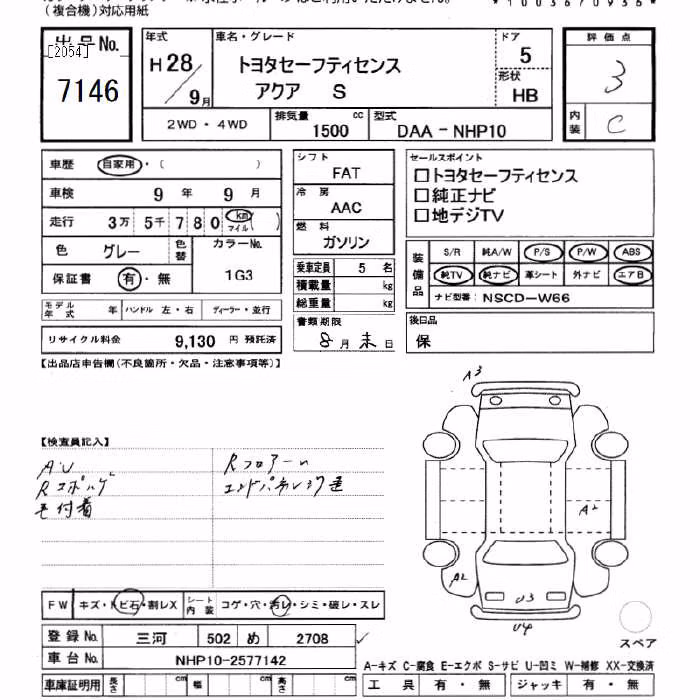 (複合機)対応用紙
*1003670936*
出品No.
[2054]
7146
年式
H28/9月
車名・グレード
トヨタセーフティセンス
アクア S
ドア
5
形状
HB
評価点
3
内装
C
2WD・4WD
排気量
1500 cc
型式
DAA-NHP10
車歴 自家用・( )
車検 9年 9月
走行 3万5千780 km マイル( )
色 グレー
色替
カラーNo.
1G3
保証書 有・無
モデル年式 年
ハンドル 左・右
ディーラー・並行
リサイクル料金 9,130 円 預託済
シフト
FAT
冷房
AAC
燃料
ガソリン
乗車定員 5 名
積載量 kg
総重量 kg
書類期限
8月末日
セールスポイント
□トヨタセーフティセンス
□純正ナビ
□地デジTV
装備品
S/R 純A/W P/S P/W ABS
純TV 純ナビ 革シート 外ナビ エアB
ナビ型番: NSCD-W66
後日品
保
【出品店申告欄(不良箇所・欠品・注意事項等)】
【検査員記入】
AU
Rフロアー
毛付着
A3
A2
A2
U3
U4
FW キズ・トビ石・割レX
シート内装 コゲ・穴・汚レ・シミ・破レ・スレ
登録No. 三河 502 め 2708
車台No. NHP10-2577142
車庫証明用 長さ cm 幅 cm 高さ cm
スペア
A-キズ C-腐食 E-エクボ S-サビ U-凹ミ W-補修 XX-交換済
工具 有・無 ジャッキ 有・無